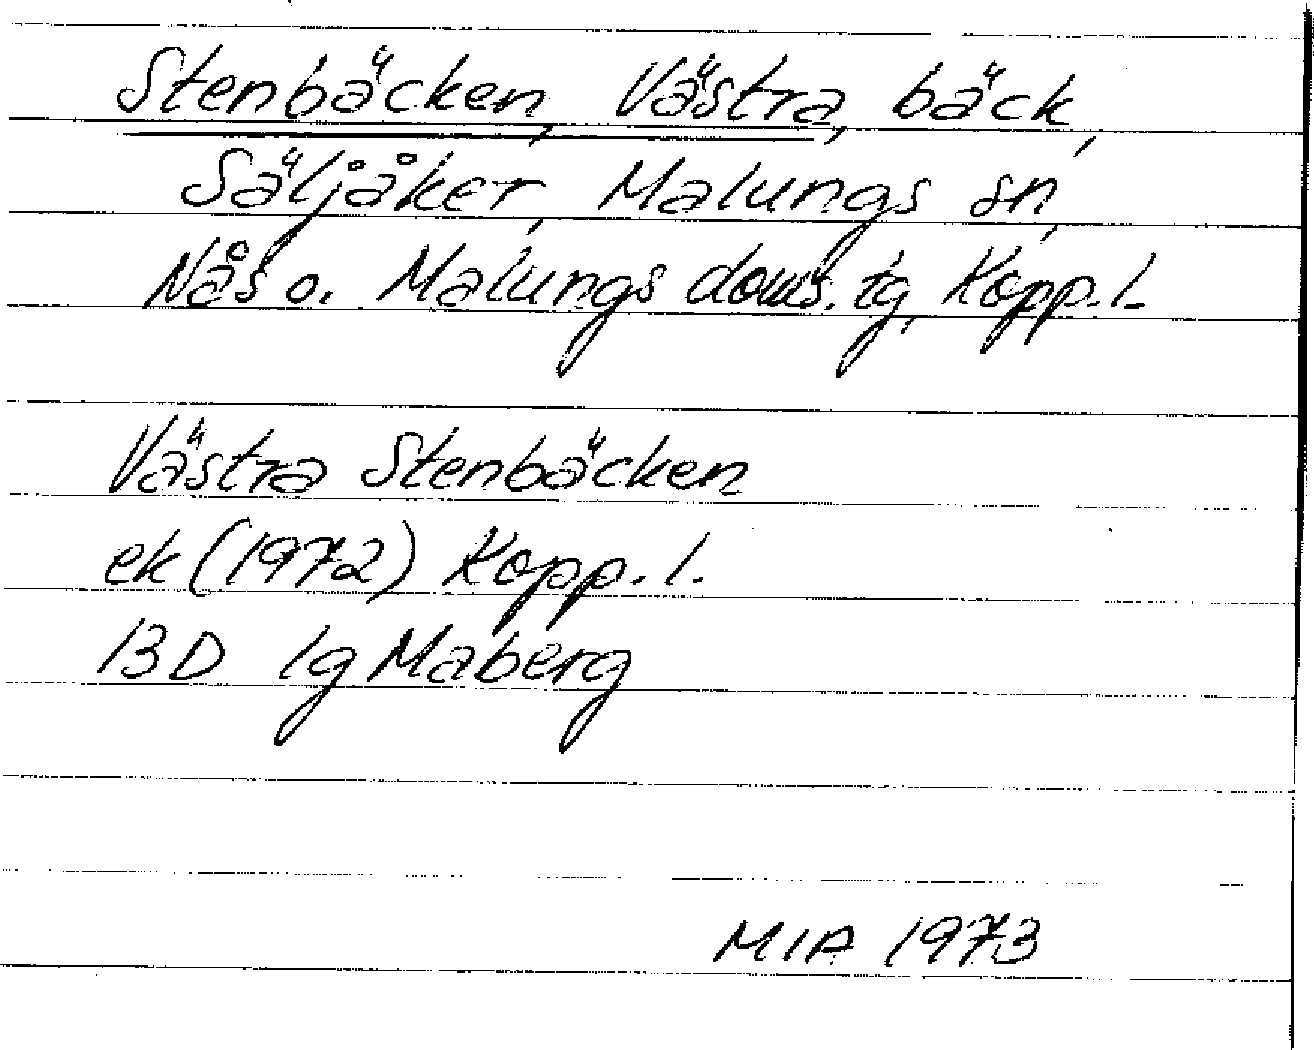 Stenbäcken, Västra, bäck,
Säljåker, Malungs sn,
Nås o. Malungs doms. tg, Kopp. l.
Västra Stenbäcken
ek (1972) Kopp. l.
13D 1g Maberg
MIA 1973